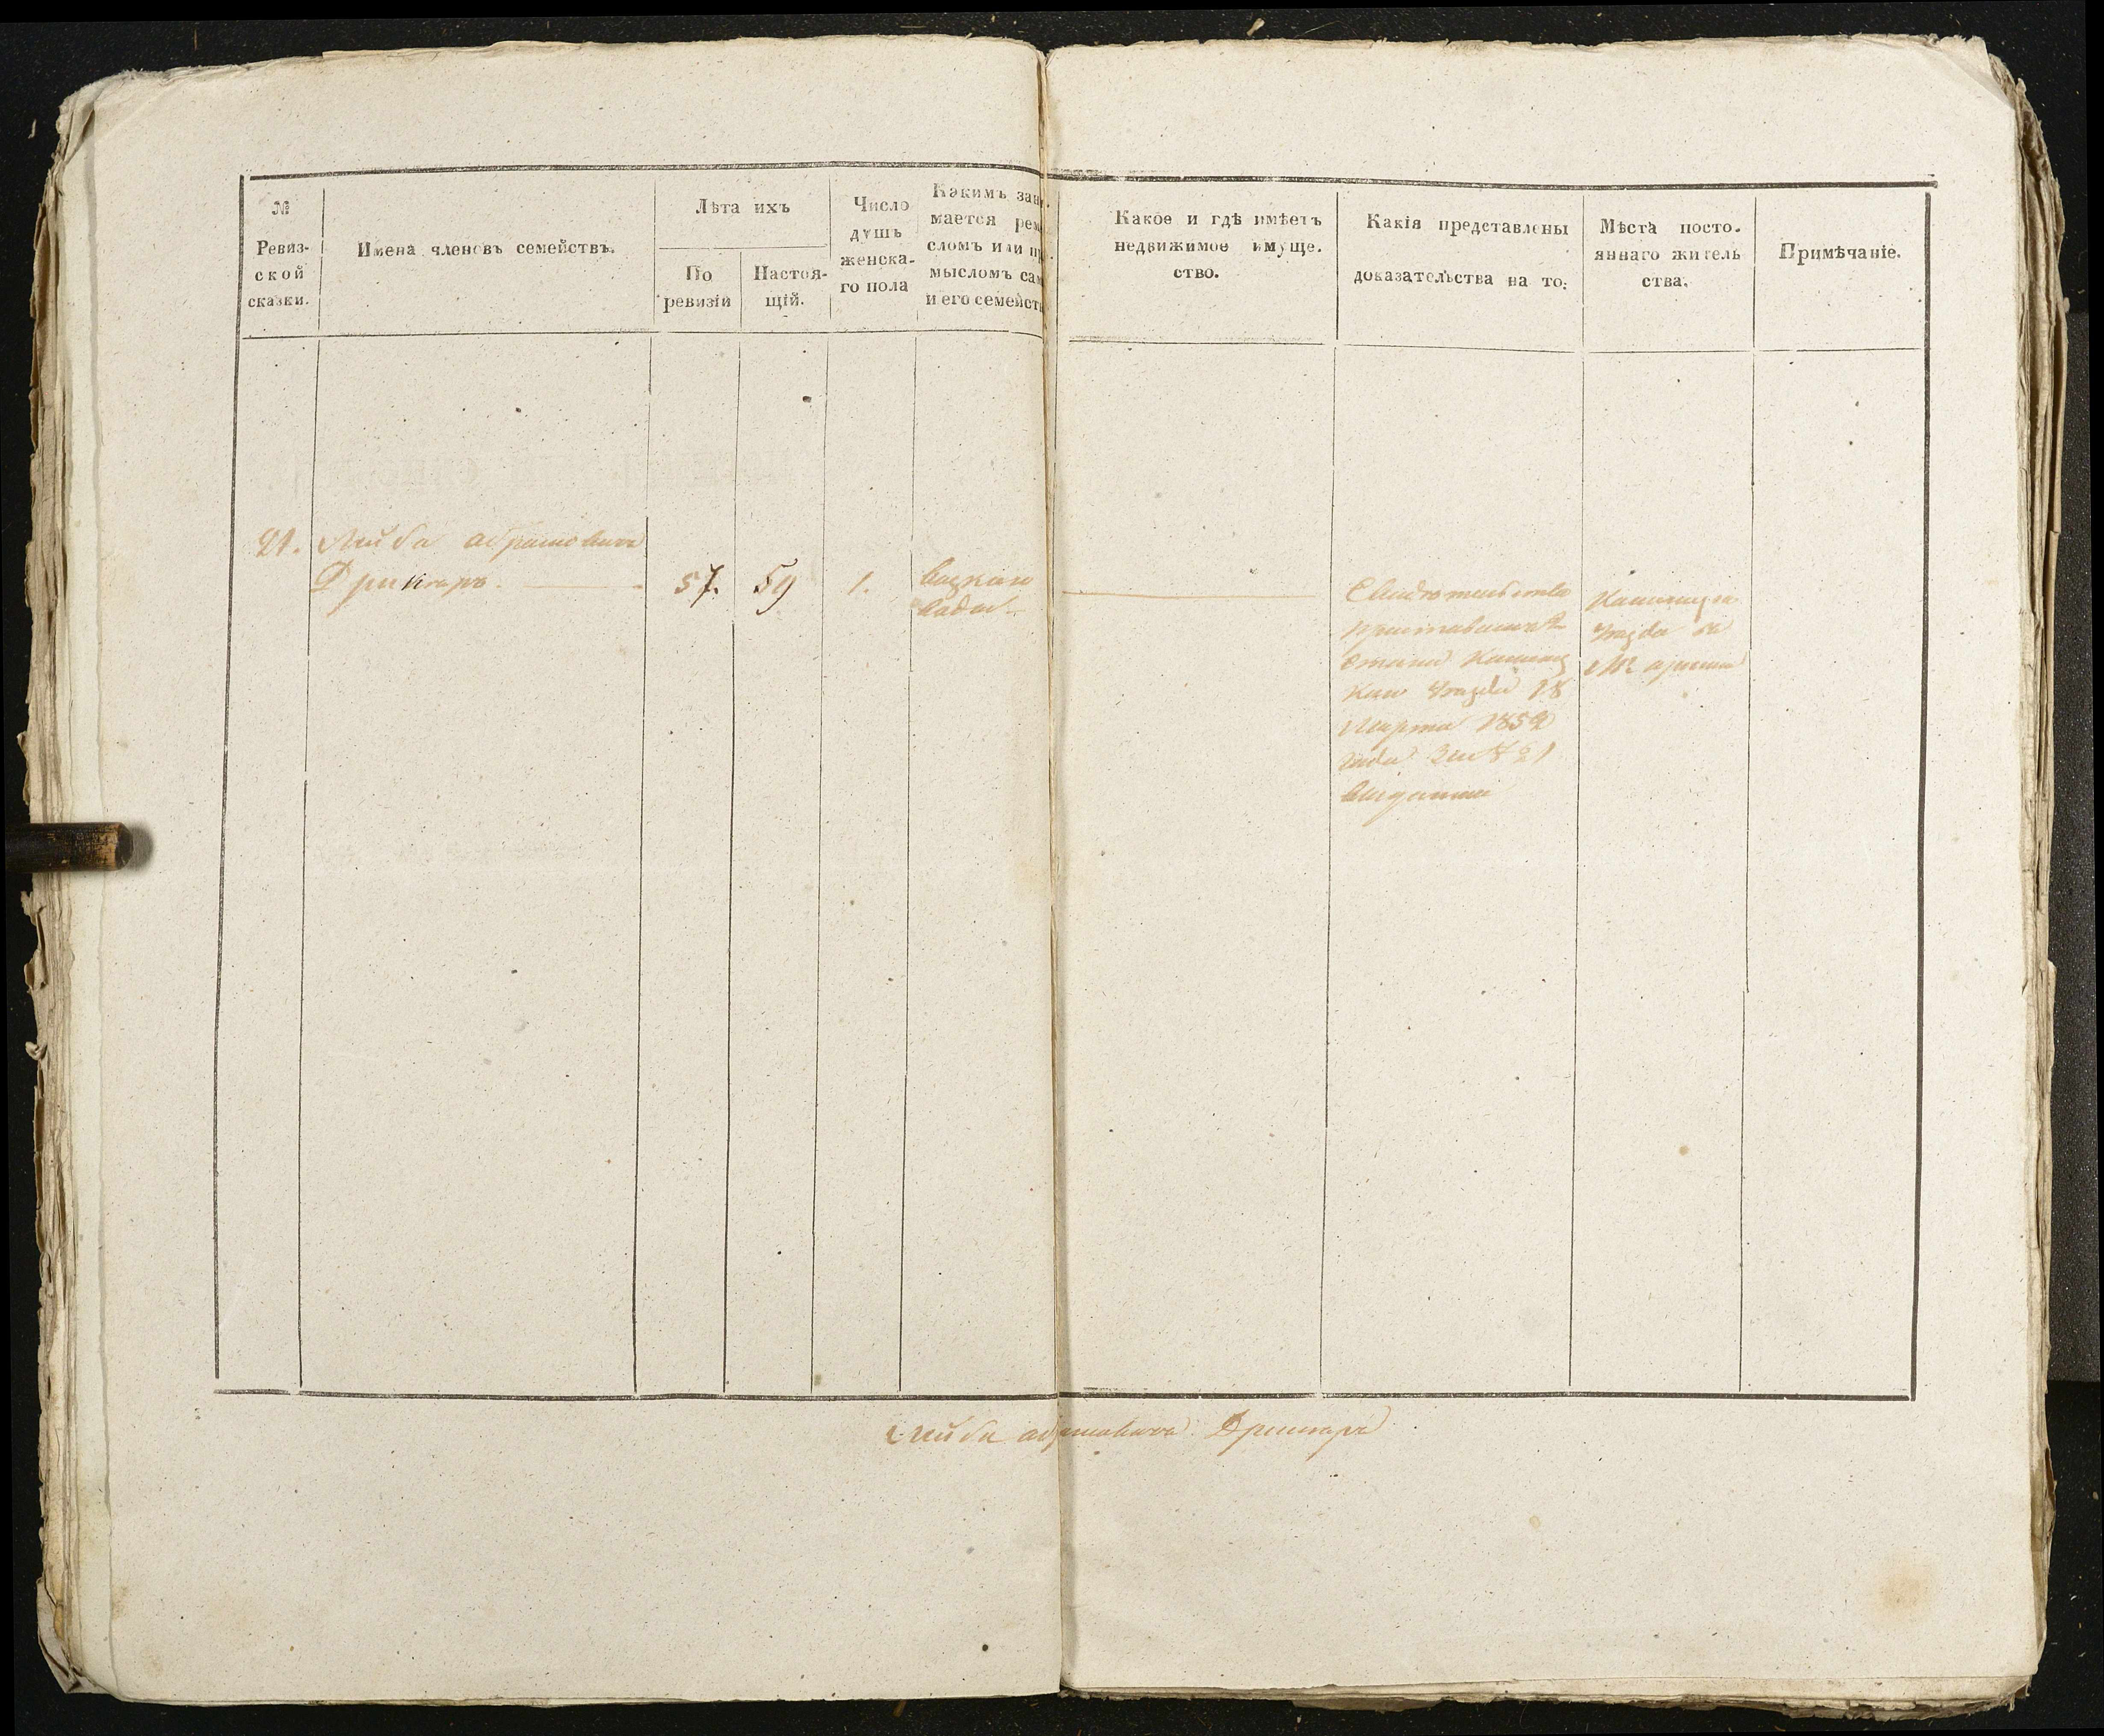 №
Ревиз-
ской
сказки.
Имена членовъ семействъ.
Лѣта ихъ
По
ревизіи
Настоя-
щій.
Число
душъ
женска-
го пола
Какимъ зани
мается рем
слом или пр
мысломъ сам
и его семейст
Какое и гдѣ имѣетъ
недвижимое имуще.
ство.
Какія представлены
доказательства на то:
Мѣста посто-
яннаго житель
ства.
Примѣчаніе.
21. Лейба Абрамовичъ
57. 59 1.
Свидѣтельство
Пристава 2
стана
уезда 18
Марта 1852
года За № 21
уезда
Лейба Абрамовичъ